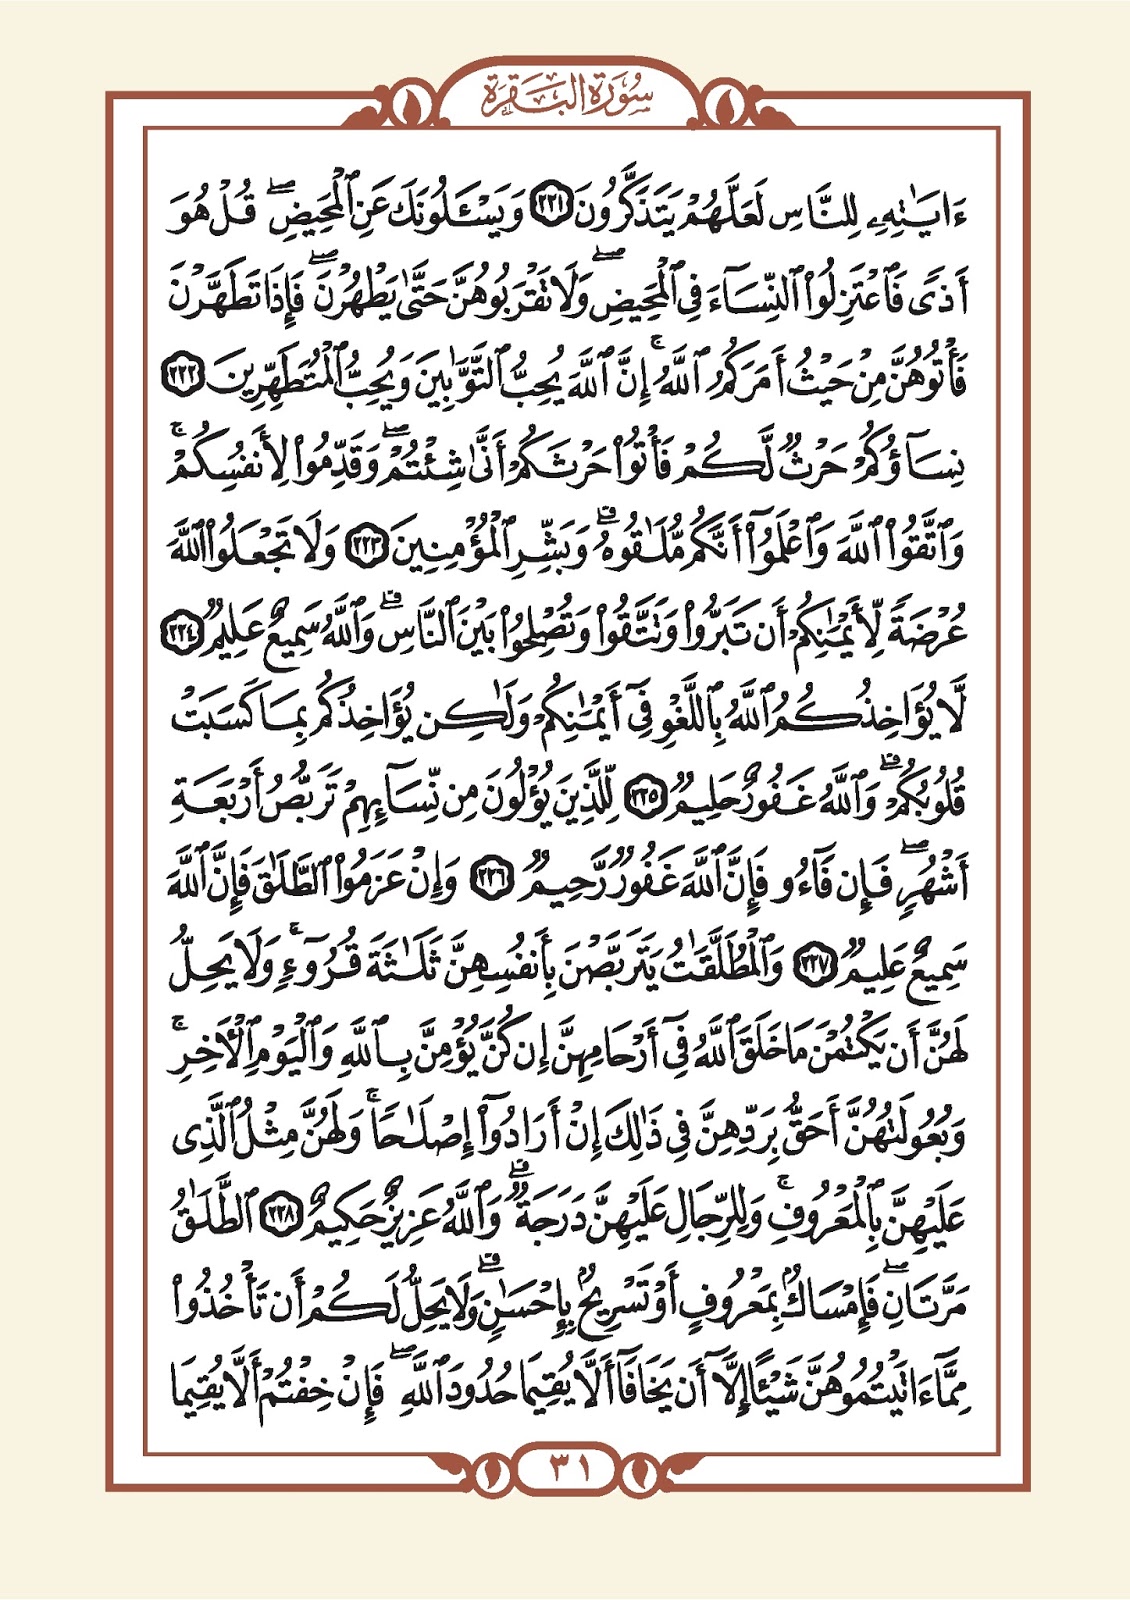 سُورَةُ الْبَقَرَةِ
ءَايَٰتِهِۦ لِلنَّاسِ لَعَلَّهُمْ يَتَذَكَّرُونَ ٢٢١ وَيَسْـَٔلُونَكَ عَنِ ٱلْمَحِيضِۖ قُلْ هُوَ
أَذًى فَٱعْتَزِلُوا۟ ٱلنِّسَآءَ فِى ٱلْمَحِيضِۖ وَلَا تَقْرَبُوهُنَّ حَتَّىٰ يَطْهُرْنَۖ فَإِذَا تَطَهَّرْنَ
فَأْتُوهُنَّ مِنْ حَيْثُ أَمَرَكُمُ ٱللَّهُۚ إِنَّ ٱللَّهَ يُحِبُّ ٱلتَّوَّٰبِينَ وَيُحِبُّ ٱلْمُتَطَهِّرِينَ ٢٢٢
نِسَآؤُكُمْ حَرْثٌ لَّكُمْ فَأْتُوا۟ حَرْثَكُمْ أَنَّىٰ شِئْتُمْۖ وَقَدِّمُوا۟ لِأَنفُسِكُمْۚ
وَٱتَّقُوا۟ ٱللَّهَ وَٱعْلَمُوٓا۟ أَنَّكُم مُّلَٰقُوهُۗ وَبَشِّرِ ٱلْمُؤْمِنِينَ ٢٢٣ وَلَا تَجْعَلُوا۟ ٱللَّهَ
عُرْضَةً لِّأَيْمَٰنِكُمْ أَن تَبَرُّوا۟ وَتَتَّقُوا۟ وَتُصْلِحُوا۟ بَيْنَ ٱلنَّاسِۗ وَٱللَّهُ سَمِيعٌ عَلِيمٌ ٢٢٤
لَّا يُؤَاخِذُكُمُ ٱللَّهُ بِٱللَّغْوِ فِىٓ أَيْمَٰنِكُمْ وَلَٰكِن يُؤَاخِذُكُم بِمَا كَسَبَتْ
قُلُوبُكُمْۗ وَٱللَّهُ غَفُورٌ حَلِيمٌ ٢٢٥ لِّلَّذِينَ يُؤْلُونَ مِن نِّسَآئِهِمْ تَرَبُّصُ أَرْبَعَةِ
أَشْهُرٍۖ فَإِن فَآءُو فَإِنَّ ٱللَّهَ غَفُورٌ رَّحِيمٌ ٢٢٦ وَإِنْ عَزَمُوا۟ ٱلطَّلَٰقَ فَإِنَّ ٱللَّهَ
سَمِيعٌ عَلِيمٌ ٢٢٧ وَٱلْمُطَلَّقَٰتُ يَتَرَبَّصْنَ بِأَنفُسِهِنَّ ثَلَٰثَةَ قُرُوٓءٍۚ وَلَا يَحِلُّ
لَهُنَّ أَن يَكْتُمْنَ مَا خَلَقَ ٱللَّهُ فِىٓ أَرْحَامِهِنَّ إِن كُنَّ يُؤْمِنَّ بِٱللَّهِ وَٱلْيَوْمِ ٱلْأَخِرِۚ
وَبُعُولَتُهُنَّ أَحَقُّ بِرَدِّهِنَّ فِى ذَٰلِكَ إِنْ أَرَادُوٓا۟ إِصْلَٰحًاۚ وَلَهُنَّ مِثْلُ ٱلَّذِى
عَلَيْهِنَّ بِٱلْمَعْرُوفِۚ وَلِلرِّجَالِ عَلَيْهِنَّ دَرَجَةٌۗ وَٱللَّهُ عَزِيزٌ حَكِيمٌ ٢٢٨ ٱلطَّلَٰقُ
مَرَّتَانِۖ فَإِمْسَاكٌۢ بِمَعْرُوفٍ أَوْ تَسْرِيحٌۢ بِإِحْسَٰنٍۗ وَلَا يَحِلُّ لَكُمْ أَن تَأْخُذُوا۟
مِمَّآ ءَاتَيْتُمُوهُنَّ شَيْـًٔا إِلَّآ أَن يَخَافَآ أَلَّا يُقِيمَا حُدُودَ ٱللَّهِۖ فَإِنْ خِفْتُمْ أَلَّا يُقِيمَا
٣١